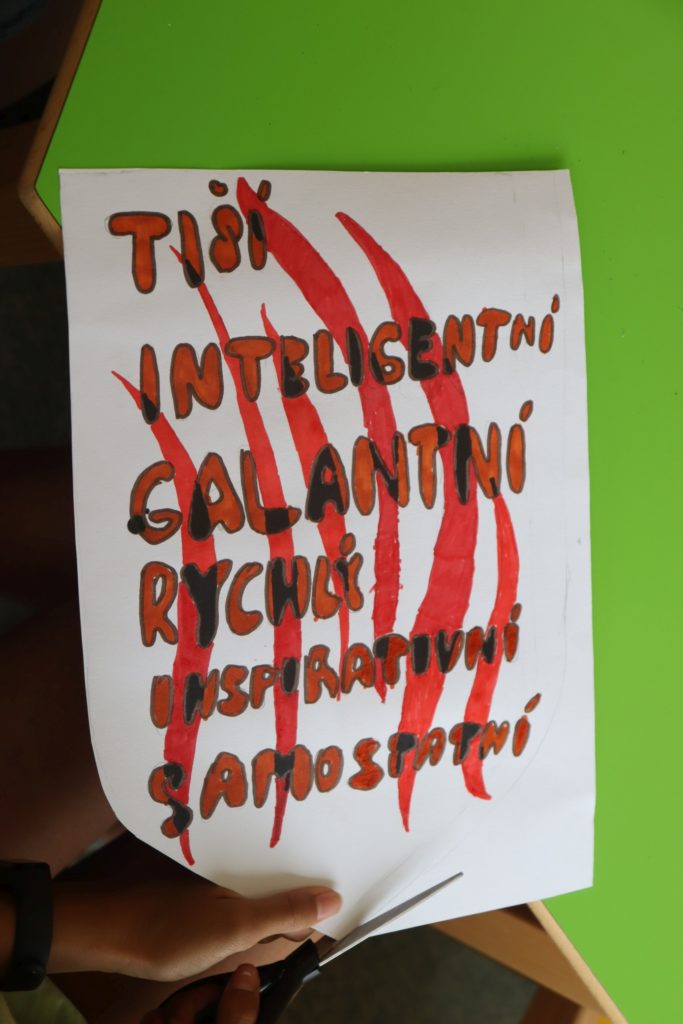 TIŠÍ
INTELIGENTNÍ
GALANTNÍ
RYCHLÝ
INSPIRATIVNÍ
SAMOSTATNÍ